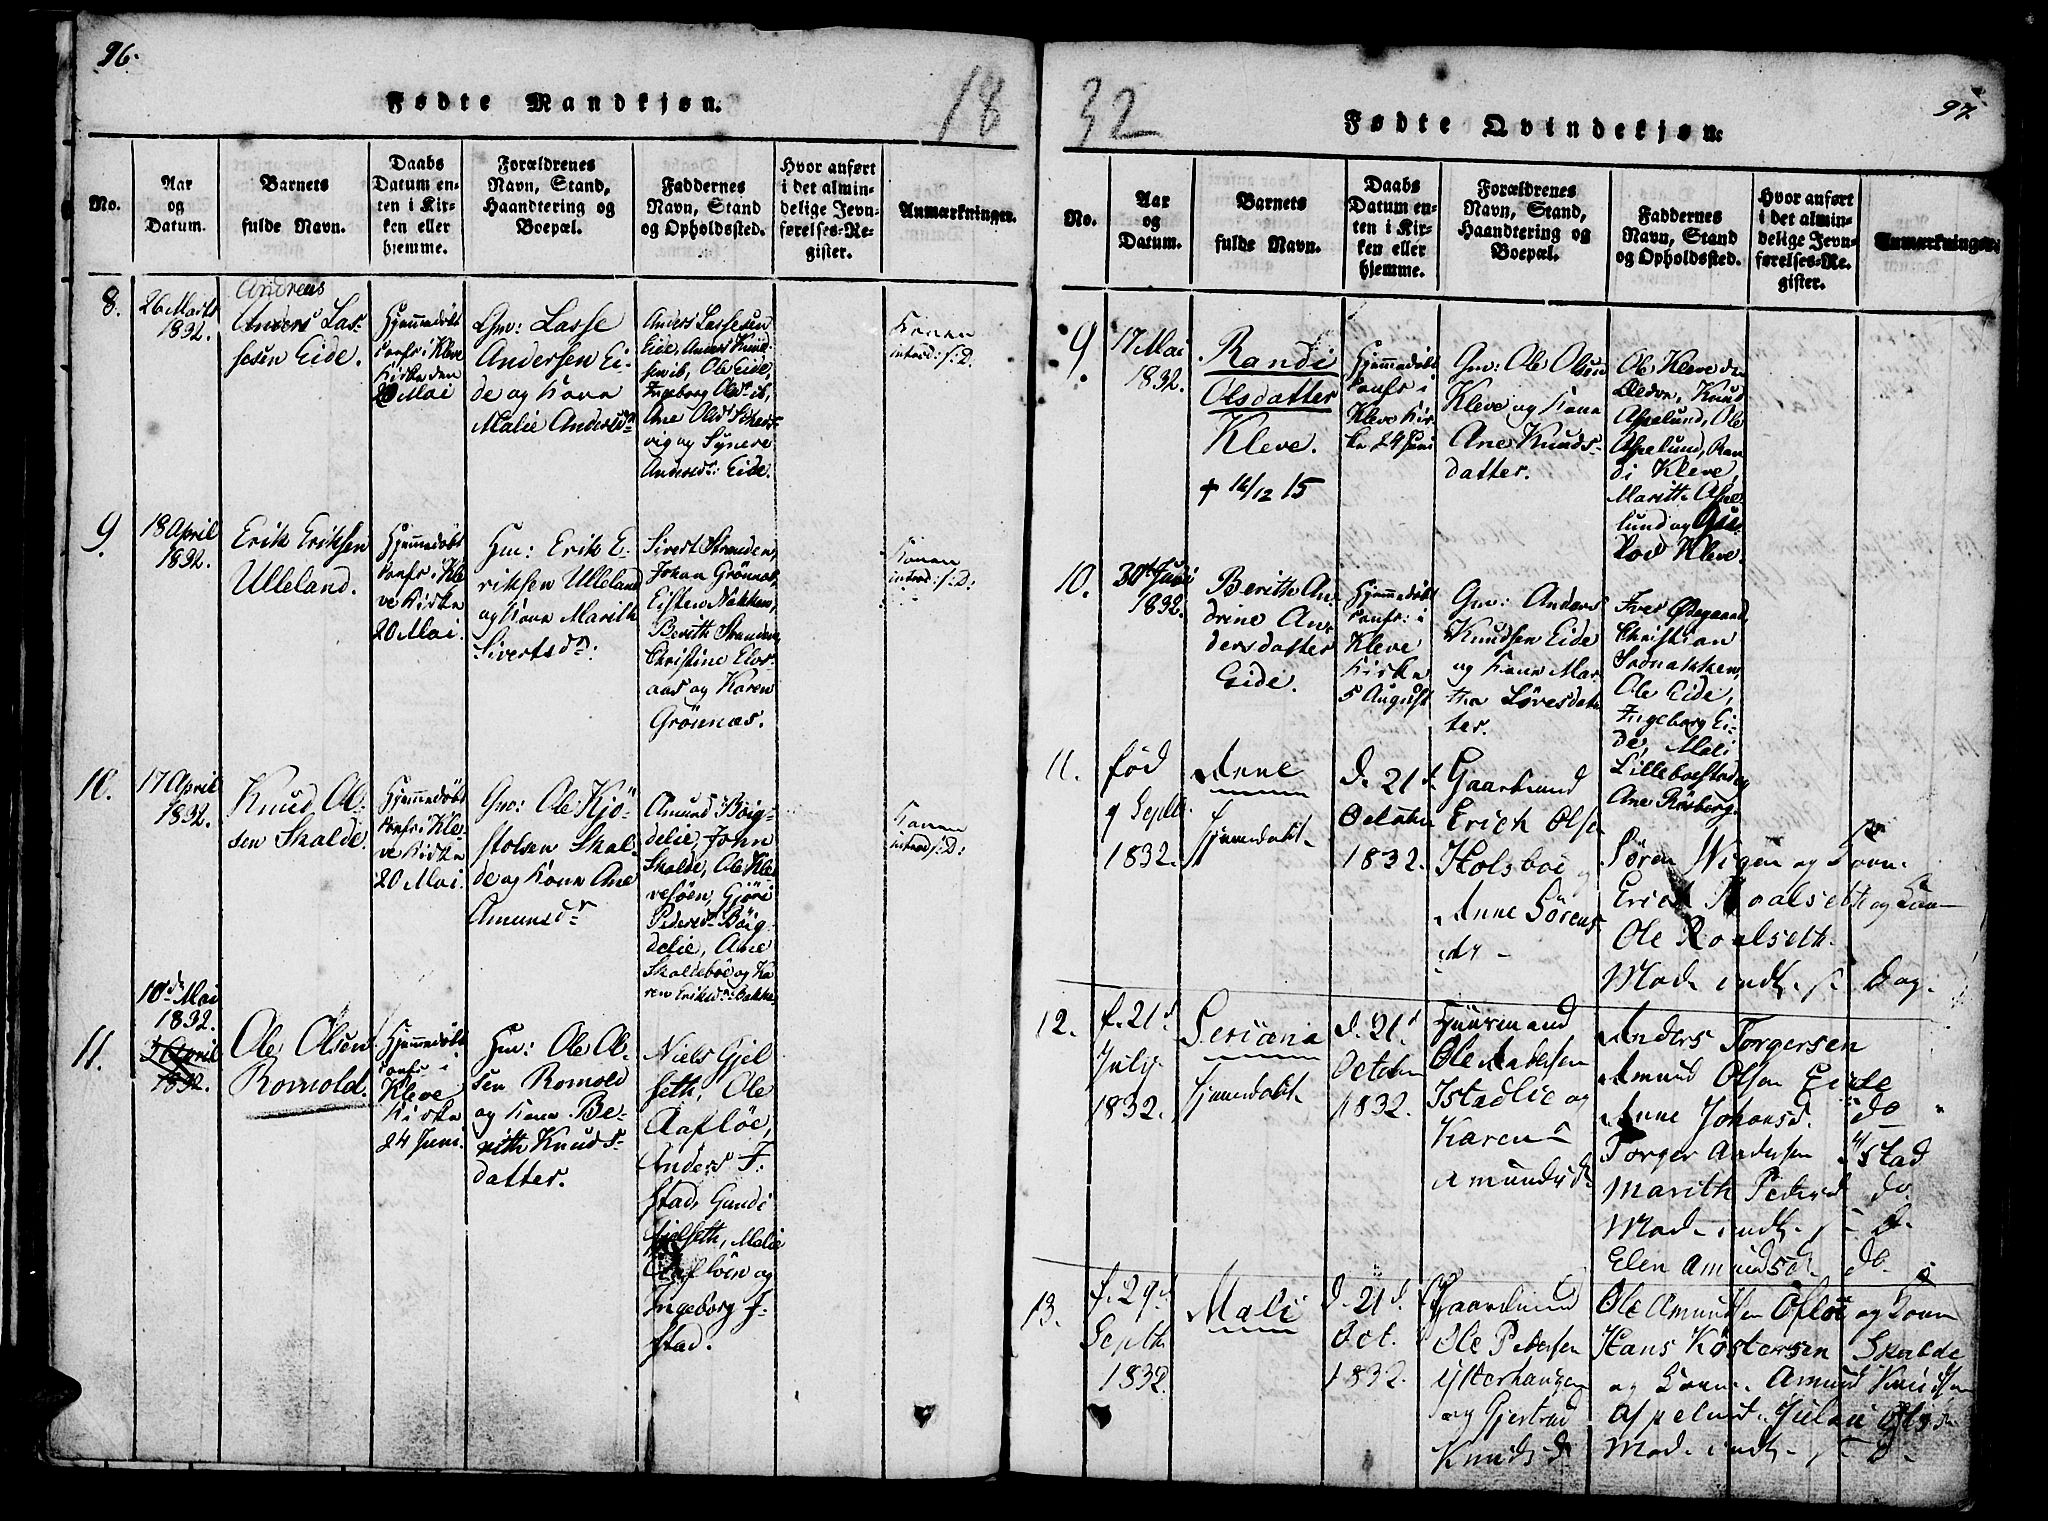 96.
Fødte Mandkjøn.
18
No.
Aar
og
Datum.
Barnets
fulde Navn.
Daabs
Datum en-
ten i Kir-
ken eller
hjemme.
Forældrenes
Navn, Stand,
Haandtering og
Boepæl.
Faddernes
Navn, Stand
og Opholdssted.
Hvor anført
i det almin-
delige Jevn-
førelses-Re-
gister.
Anmærkninger.
8.
26 Marts
1832.
Andreas
Anders Las-
sesen Eide.
Hjemmedöbt
conf: i Kleve
Kirke den
20 Mai
Gm: Lasse
Andersen Ei-
de og Kone
Malie Andersdr
Anders Lassesen
Eide, Anders Knud-
sen ib, Ole Eide,
Ingeborg Olsdr ib,
Ane Olsdr
vig og Synere
Andersdr: Eide.
Konen
introd: s: D:
9
18 April
1832.
Erik Eriksen
Ulleland.
Hjemmedöbt
conf: i Kle-
ve Kirke
20 Mai.
Hm: Erik E-
riksen Ulleland
og Kone Marith
Sivertsdr:
Sivert Stranden,
Johan Grönnes,
Eisten Nakken,
Berith Stranden,
Christine Elvs-
aas og Karen
Grönnæs.
Konen
introd: s: D:
10.
17 April
1832.
Knud Ol-
sen Skalde.
Hjemmedöbt
conf: i Kle-
ve Kirke
20 Mai.
Gm: Ole Kjö-
stolsen Skal-
de og Kone Ane
Amundsdr
Amund Böig-
delie, John
Skalde, Ole Kle-
vesöen, Gjöri
Pedersdr Böig-
delie, Ane
Skaldeböe og Ka
ren Eriksdr: Bakke
Konen
introd: s: D:
11.
10de Mai
1832.
3 April
1832.
Ole Olsen
Romold.
Hjemmedöbt
conf: i
Kleve
Kirke
24 Juni.
Hm: Ole Ol-
sen Romold
og Kone Be-
rith Knuds-
datter.
Niels Gjel
seth, Ole
Aaflöe,
Anders I-
stad, Gundi
Gjelseth, Malie
Aaflöen og
Ingeborg I-
stad.
32
97.
Fødte Qvindekjøn.
No.
Aar
og
Datum.
Barnets
fulde Navn.
Daabs
Datum en-
ten i Kir-
ken eller
hjemme.
Forældrenes
Navn, Stand,
Haandtering og
Boepæl.
Faddernes
Navn, Stand
og Opholdssted.
Hvor anført
i det almin-
delige Jevn-
førelses-Re-
gister.
Anmærkninger.
9.
17 Mai
1832.
Randi
Olsdatter
Kleve.
+ 16/12 15
Hjemmedöbt
conf: i
Kleve Kir-
ke 24 Juni
Gm: Ole Olsen
Kleve og Kone
Ane Knuds-
datter.
Ole Kleve den
Ældre, Knud
Aspelund, Ole
Aspelund, Ran
di Kleve,
Marith Aspe-
lund og
Kleve.
10.
30te Juni
1832.
Berith An-
drine An-
dersdatter
Eide.
Hjemmedöbt
conf: i
Kleve
Kirke
5 August
Gm: Anders
Knudsen Eide
og Kone Mar-
tha Sörensdat-
ter.
Iver Ødegaard,
Christian
Sødnakken,
Ole Eide,
Ingeborg Ei-
de, Mali
Lilleboestad og
Ane Risberg.
11.
fød
9 Septbr
1832.
Anne
hjemdøbt
d. 21d
October
1832.
Gaardmand
Erich Olsen
Holsböe og
Anne Sörens
dr
Sören Wigen og Kone
Erich Roalseth og Kone
Ole Roalseth.
Mod. indl. s. Dag.
12.
f. 21d
July
1832.
Seriana
hjemdøbt
d. 21d
October
1832.
Huusmand
Ole Andersen
Istadlie og
Karen
Amundsdr
Anders Torgersen
Amund Olsen Eide
Anne Johansd. do
Torger Andersen Istad
Marith Pedersd do.
Mod. indl. s. D.
Elen Amundsdr. do.
13.
f. 29d
Septbr
1832.
Mali
d. 21d.
Oct.
1832.
Gaardmand
Ole Pedersen
ytterhaugen
og Gjertrud
Knudsdr
Ole Amundsen Afløe og Kone
Hans Köstersen Skalde
og Kone. Amund Knudsen
Aspelund.
Mod. indl. s. D.